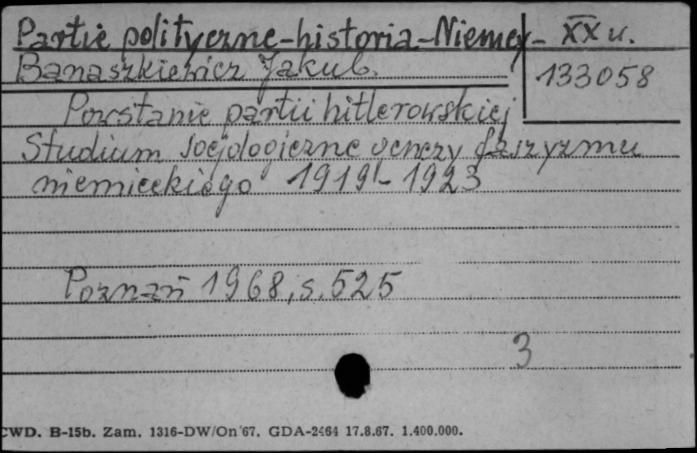 Partie polityczne-historia-Niemcy- XX w.
Banaszkiewicz Jakub.
133058
Powstanie partii hitlerowskiej
Studium socjologiczne genezy faszyzmu
niemieckiego 1919-1923
Poznań 1968, s. 525
3
CWD. B-15b. Zam. 1316-DW/On 67. GDA-2464 17.8.67. 1.400.000.